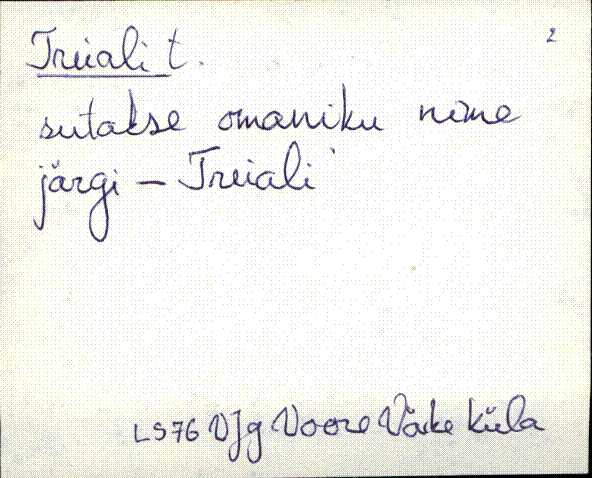 2
Treiali t.
sutakse omaniku nime
järgi – Treiali
LS76 VJg Voore Väike küla